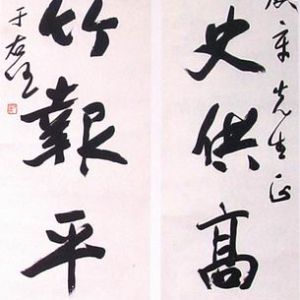 先生正
史供高
竹報平
于右任